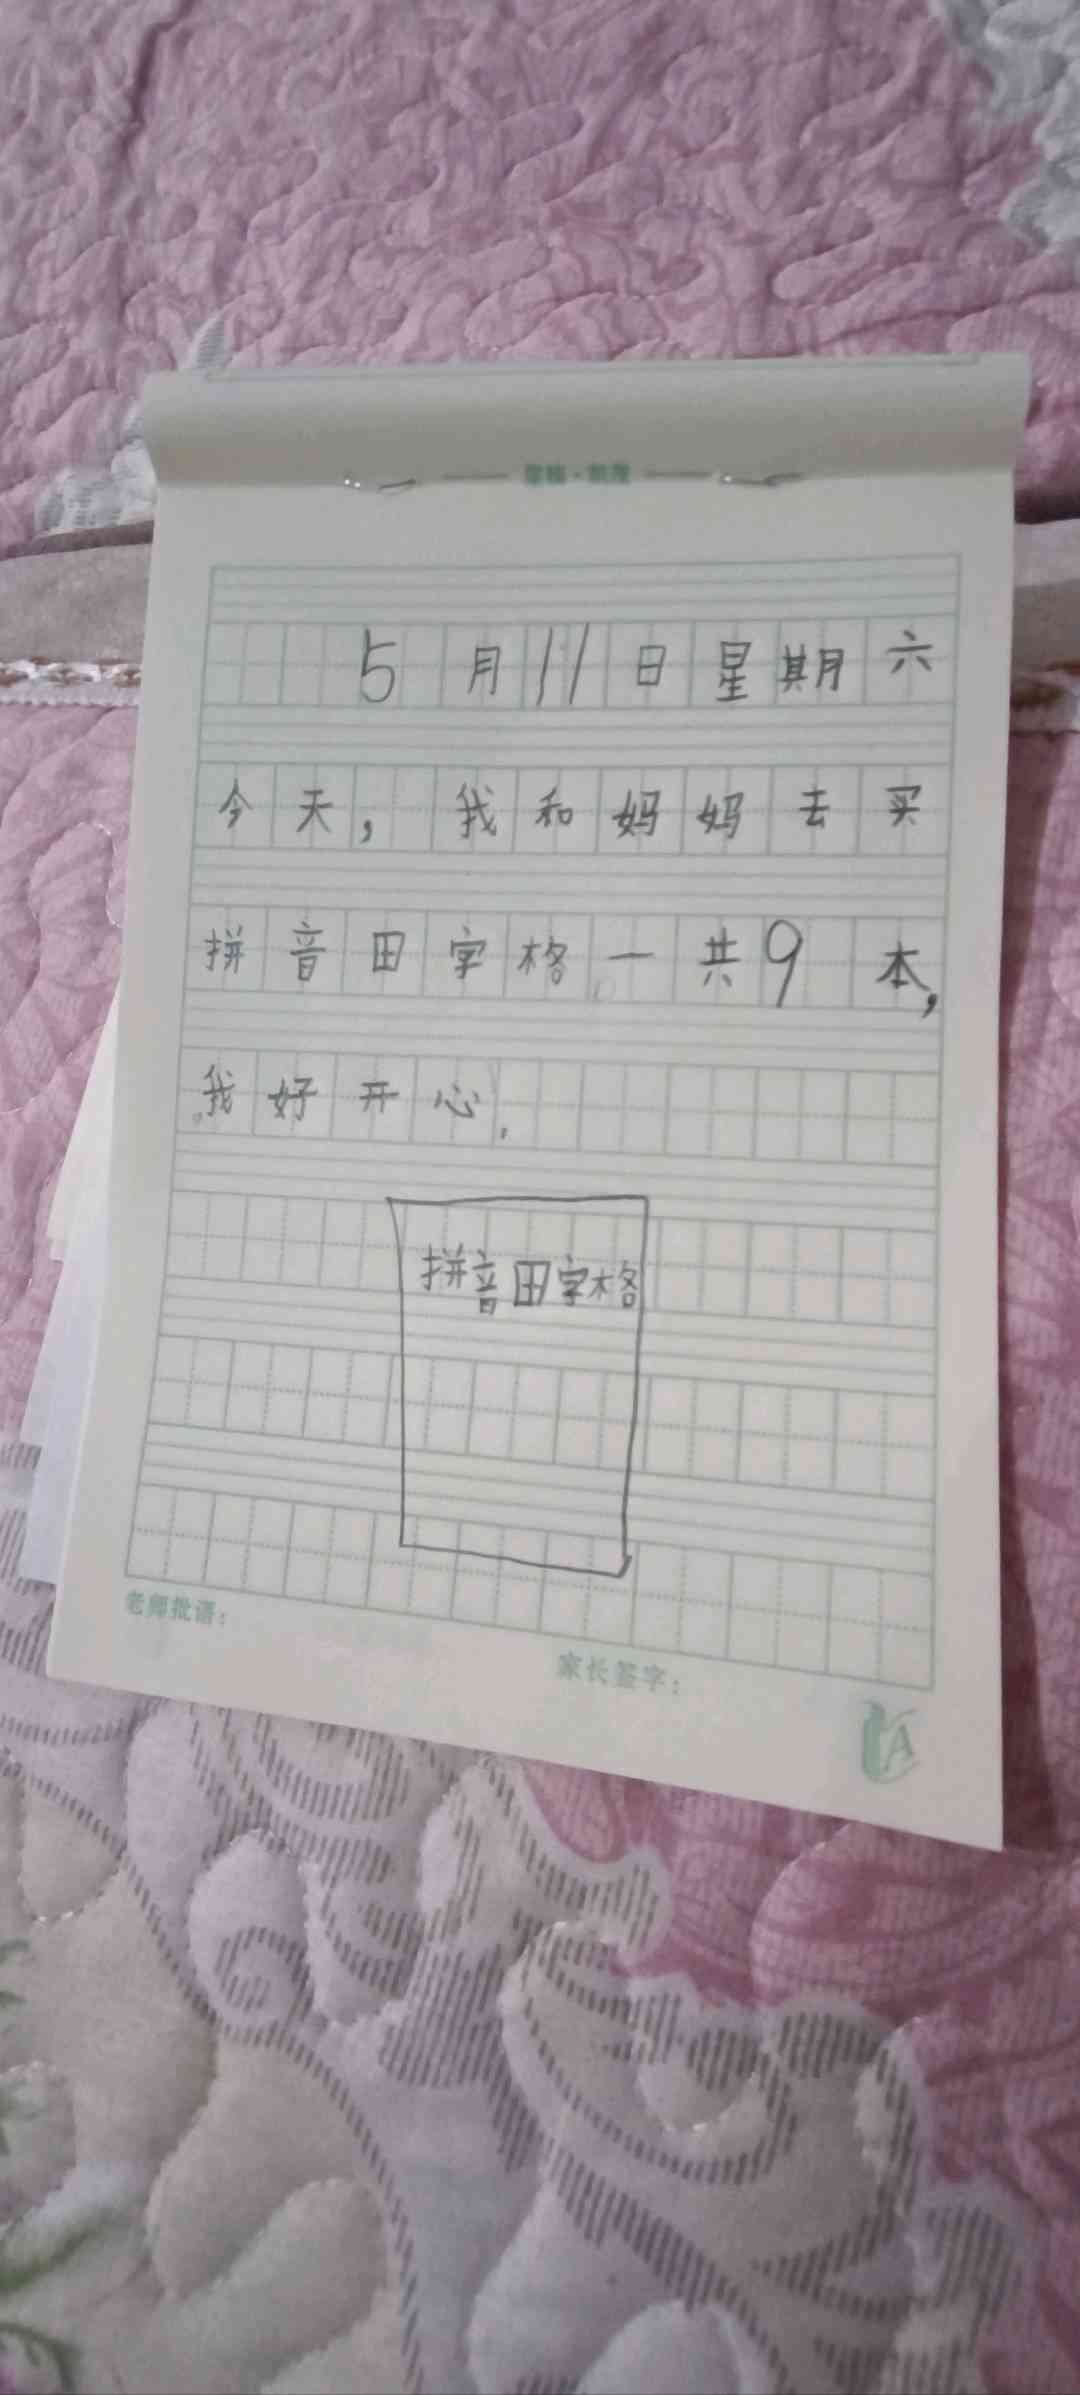 5月11日星期六
今天，我和妈妈去买
拼音田字格一共9本，
我好开心，
拼音田字格
老师批语：
家长签字：